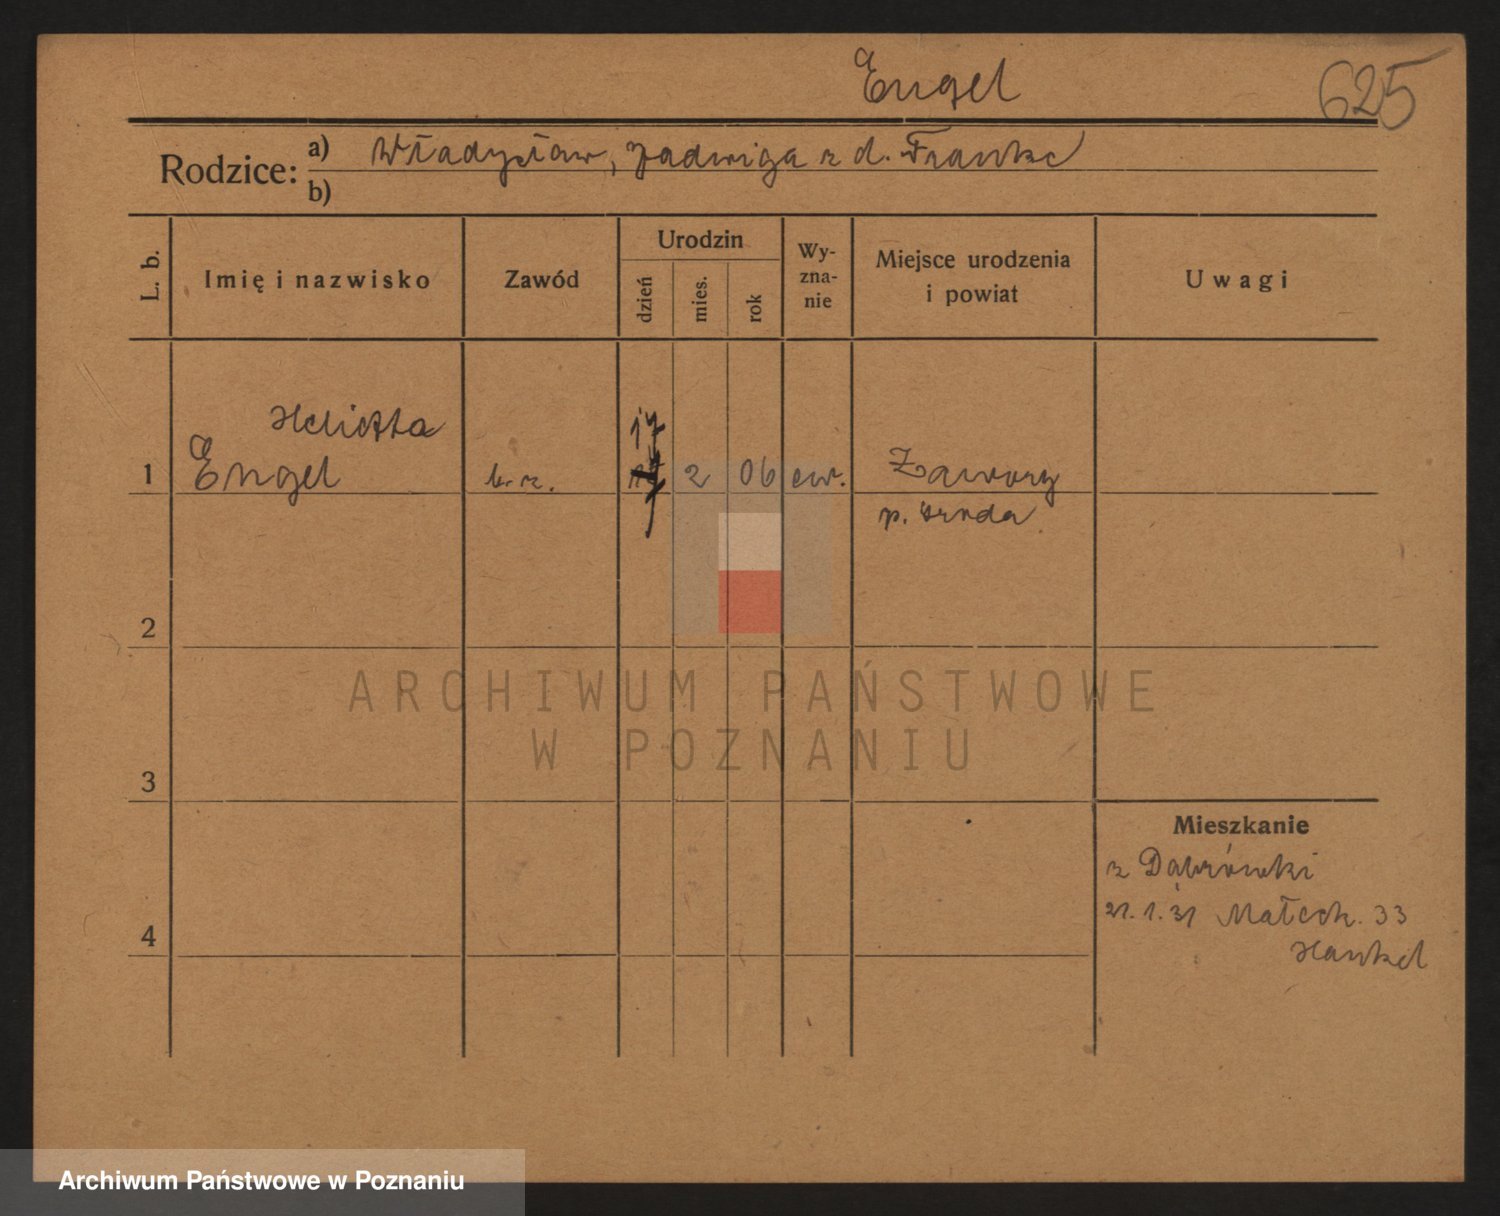 Engel
625
Rodzice: a) Władysław, Jadwiga z d. Franke
b)
L. b.
Imię i nazwisko
Zawód
Urodzin
dzień
mies.
rok
Wy-
zna-
nie
Miejsce urodzenia
i powiat
Uwagi
Helietta
1 Engel b. z. 17 2 06 ew. Zawory
p. Środa
2
3
4
ARCHIWUM PAŃSTWOWE
W POZNANIU
Mieszkanie
z Dąbrówki
21. 1. 31 Małeck. 33
Hankel
Archiwum Państwowe w Poznaniu